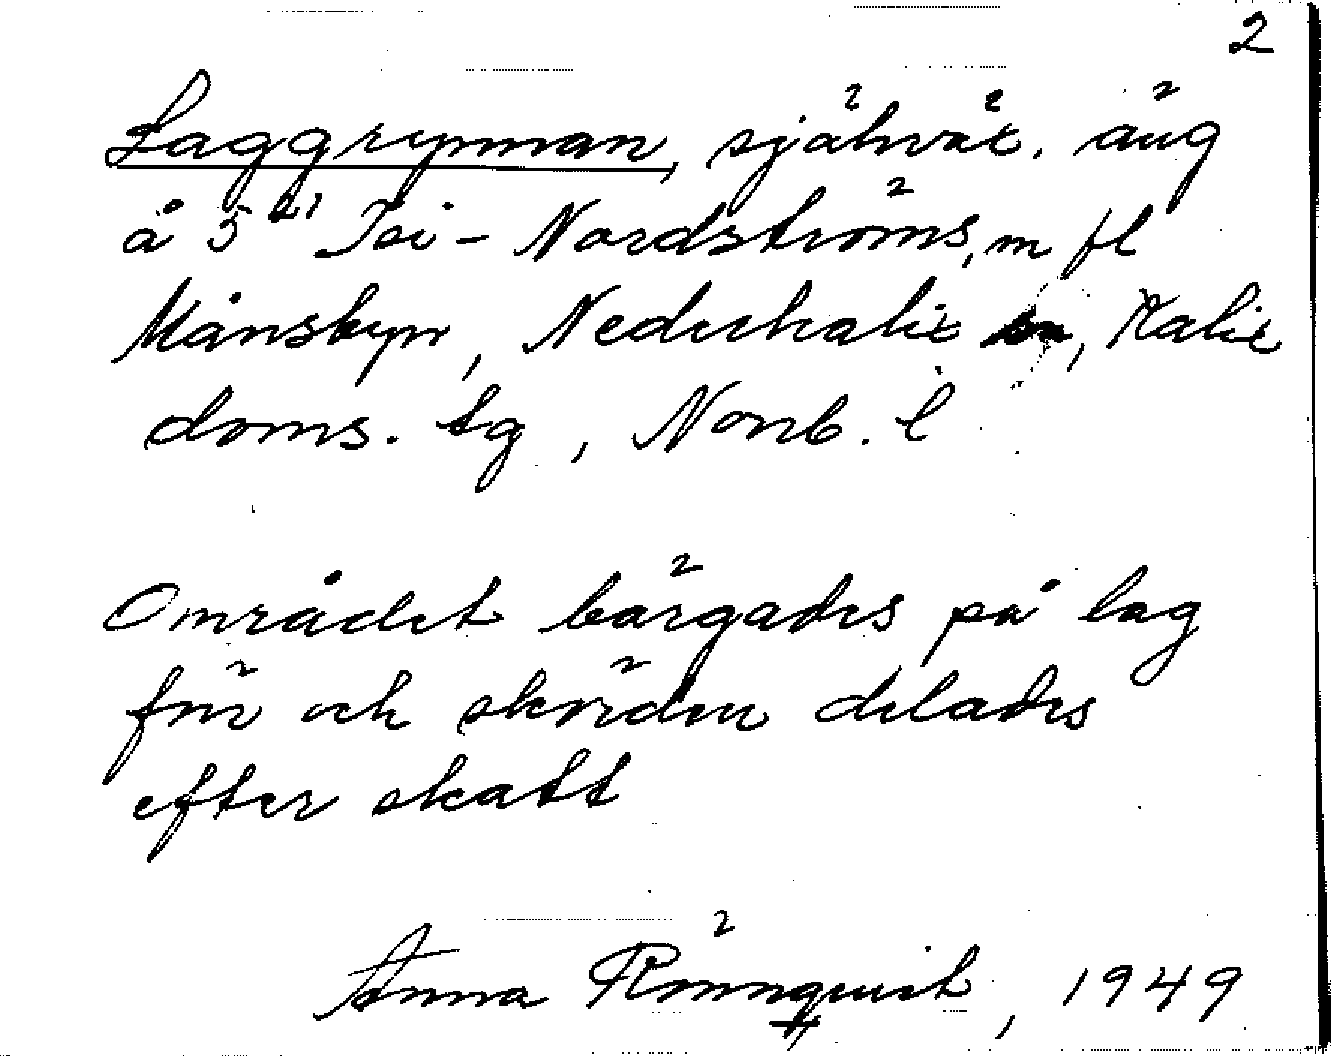 2
Laggrynnan, självväx. äng
å 5²¹ Isi-Nordströms, m fl
Månsbyn, Nederkalix sn, Kalix
doms. tg, Norrb. l
Området bärgades på lag
förr och skörden delades
efter skatt
Anna Rönnqvist, 1949